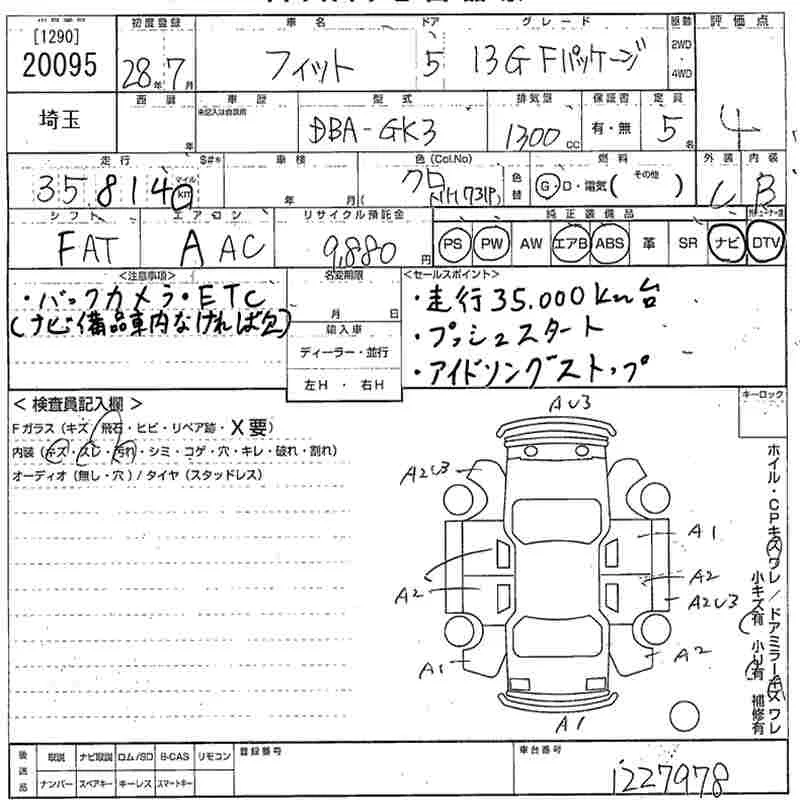 [1290]
20095
初度登録
車名
ドア
グレード
駆動
評価点
28年7月
フィット
5
13G Fパッケージ
2WD
4WD
4
埼玉
西暦
年
車歴
未記入は自家用
型式
DBA-GK3
排気量
1300cc
保証書
有・無
定員
5名
走行
35814
マイル
km
S#*
車検
年 月
色(Col.No)
クロ
色替
燃料
G・D・電気( その他 )
外装
内装
B
シフト
FAT
エアコン
A AC
リサイクル預託金
9,880円
純正装備品
PS
PW
AW
エアB
ABS
革
SR
ナビ
DTV
<注意事項>
・バックカメラ・ETC
(ナビ備品車内なければ欠)
名変期限
月 日
輸入車
ディーラー・並行
左H・右H
<セールスポイント>
・走行35.000km台
・プッシュスタート
・アイドリングストップ
<検査員記入欄>
Fガラス(キズ・飛石・ヒビ・リペア跡・X要)
内装(キズ・スレ・汚れ・シミ・コゲ・穴・キレ・破れ・割れ)
オーディオ(無し・穴)/タイヤ(スタッドレス)
キーロック
AU3
A2U3
A1
A2
A2
A2U3
A1
A2
A1
ホイル・CPキズワレ/ドアミラーキズワレ
小キズ有 小U有 補修有
後送品
取説
ナビ取説
ロム/SD
B-CAS
リモコン
ナンバー
スペアキー
キーレス
スマートキー
登録番号
車台番号
1227978